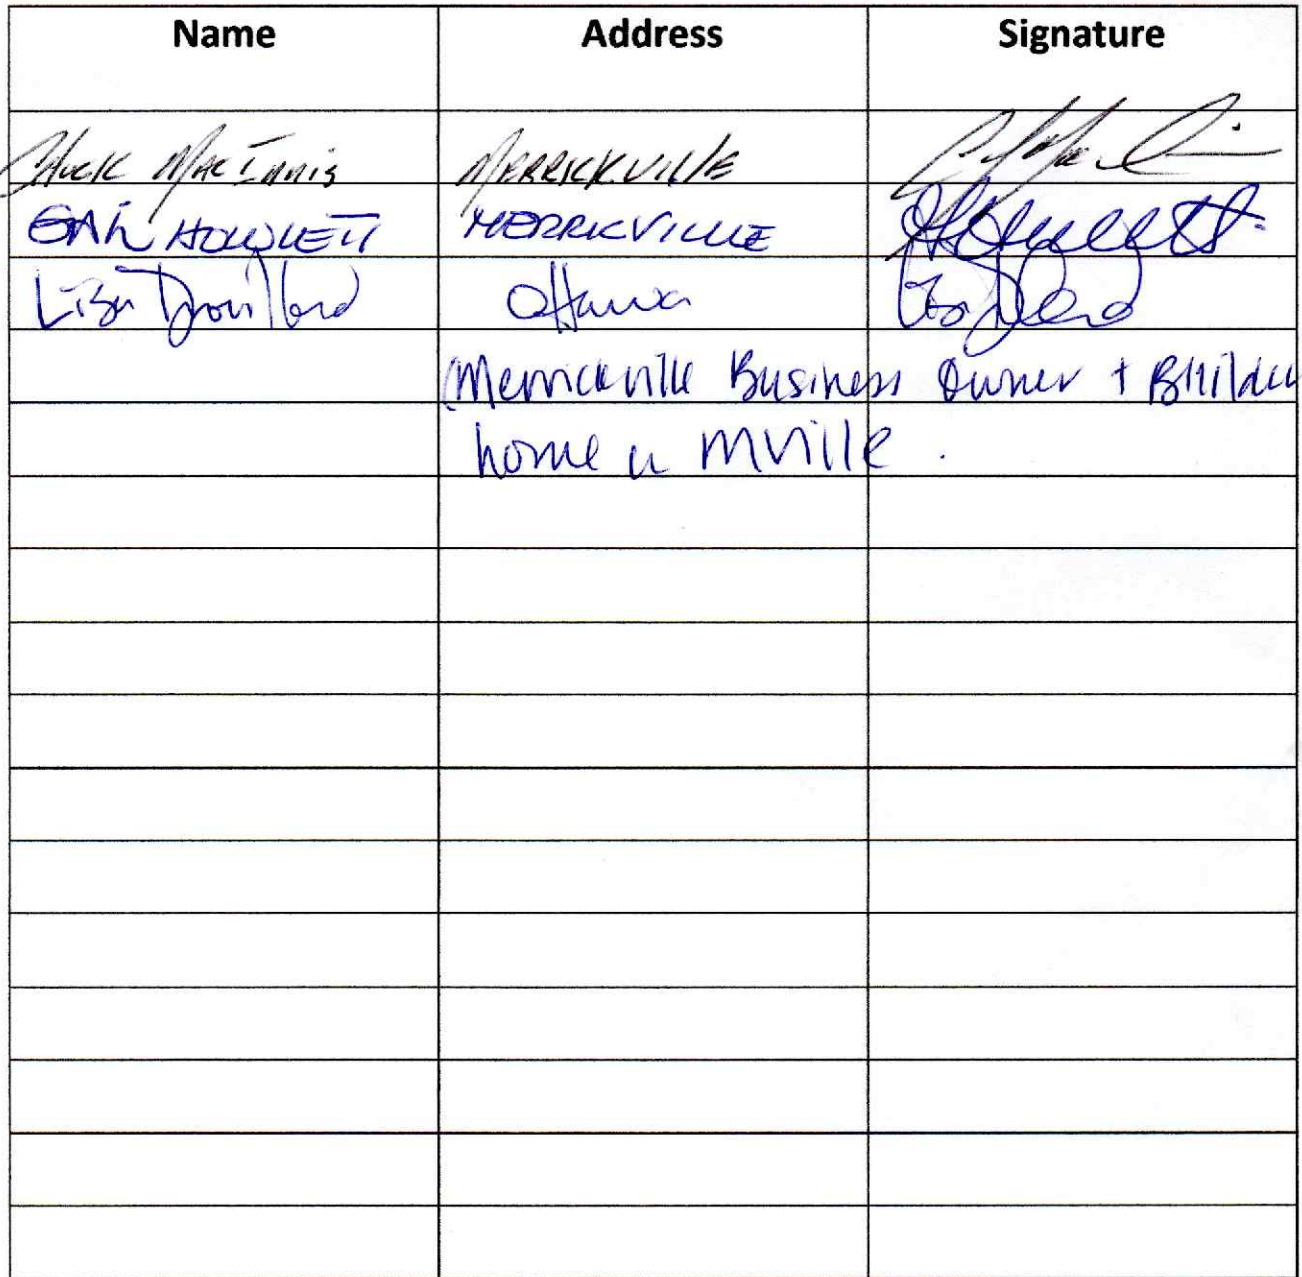 Name Address Signature
Chuck MacInnis MERRICKVILLE
GAIL HOWLETT MERRICKVILLE
Lisa Drouillard Ottawa
Merrickville Business Owner + Building
home in Mville.